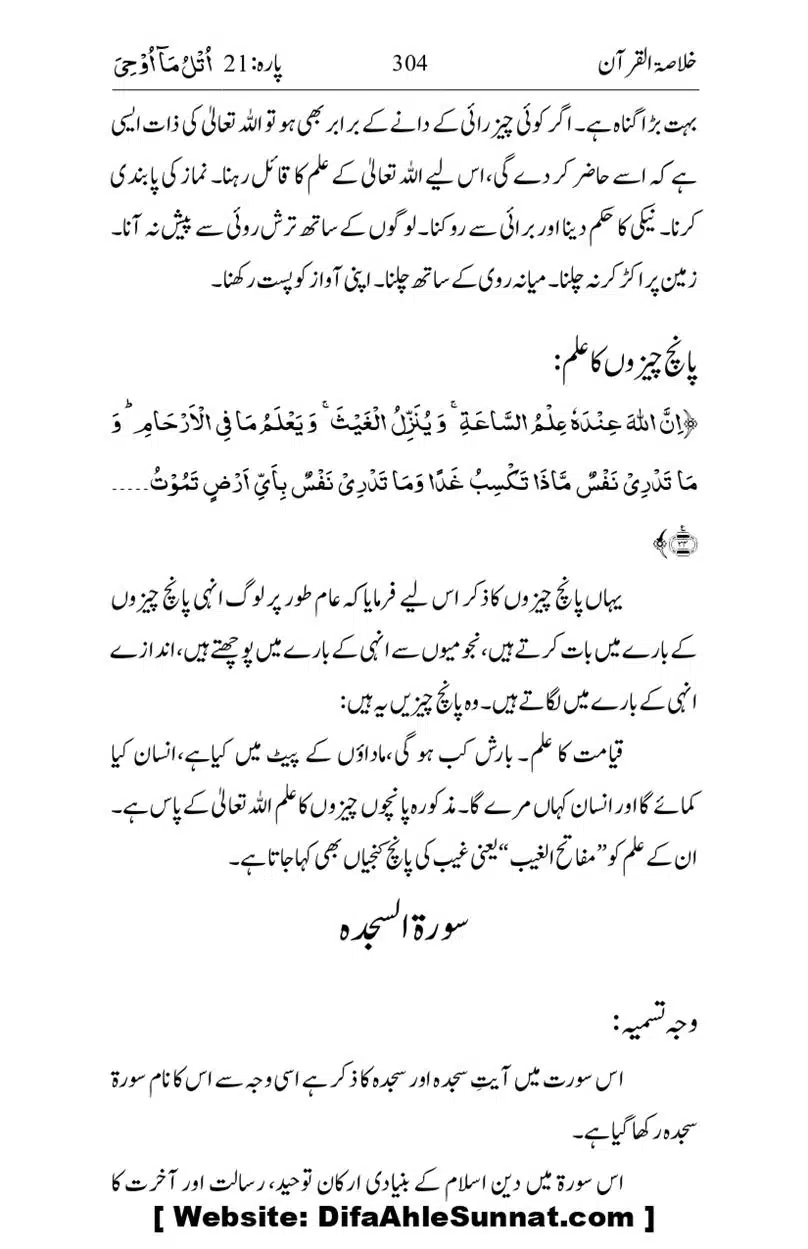 خلاصۃ القرآن 304 پارہ: 21 اُتْلُ مَآ اُوْحِیَ
بہت بڑا گناہ ہے۔ اگر کوئی چیز رائی کے دانے کے برابر بھی ہو تو اللہ تعالیٰ کی ذات ایسی
ہے کہ اسے حاضر کر دے گی، اس لیے اللہ تعالیٰ کے علم کا قائل رہنا۔ نماز کی پابندی
کرنا۔ نیکی کا حکم دینا اور برائی سے روکنا۔ لوگوں کے ساتھ ترش روئی سے پیش نہ آنا۔
زمین پر اکڑ کر نہ چلنا۔ میانہ روی کے ساتھ چلنا۔ اپنی آواز کو پست رکھنا۔
پانچ چیزوں کا علم:
﴿اِنَّ اللّٰہَ عِنْدَہٗ عِلْمُ السَّاعَۃِ ۚ وَ یُنَزِّلُ الْغَیْثَ ۚ وَ یَعْلَمُ مَا فِی الْاَرْحَامِ ؕ وَ
مَا تَدْرِیْ نَفْسٌ مَّاذَا تَکْسِبُ غَدًا وَمَا تَدْرِیْ نَفْسٌ بِاَیِّ اَرْضٍ تَمُوْتُ.....
﴿۳۴﴾
یہاں پانچ چیزوں کا ذکر اس لیے فرمایا کہ عام طور پر لوگ انہی پانچ چیزوں
کے بارے میں بات کرتے ہیں، نجومیوں سے انہی کے بارے میں پوچھتے ہیں، اندازے
انہی کے بارے میں لگاتے ہیں۔ وہ پانچ چیزیں یہ ہیں:
قیامت کا علم۔ بارش کب ہو گی، ماداؤں کے پیٹ میں کیا ہے، انسان کیا
کمائے گا اور انسان کہاں مرے گا۔ مذکورہ پانچوں چیزوں کا علم اللہ تعالیٰ کے پاس ہے۔
ان کے علم کو ”مفاتح الغیب“ یعنی غیب کی پانچ کنجیاں بھی کہا جاتا ہے۔
سورۃ السجدہ
وجہ تسمیہ:
اس سورت میں آیتِ سجدہ اور سجدہ کا ذکر ہے اسی وجہ سے اس کا نام سورۃ
سجدہ رکھا گیا ہے۔
اس سورۃ میں دین اسلام کے بنیادی ارکان توحید، رسالت اور آخرت کا
[ Website: DifaAhleSunnat.com ]